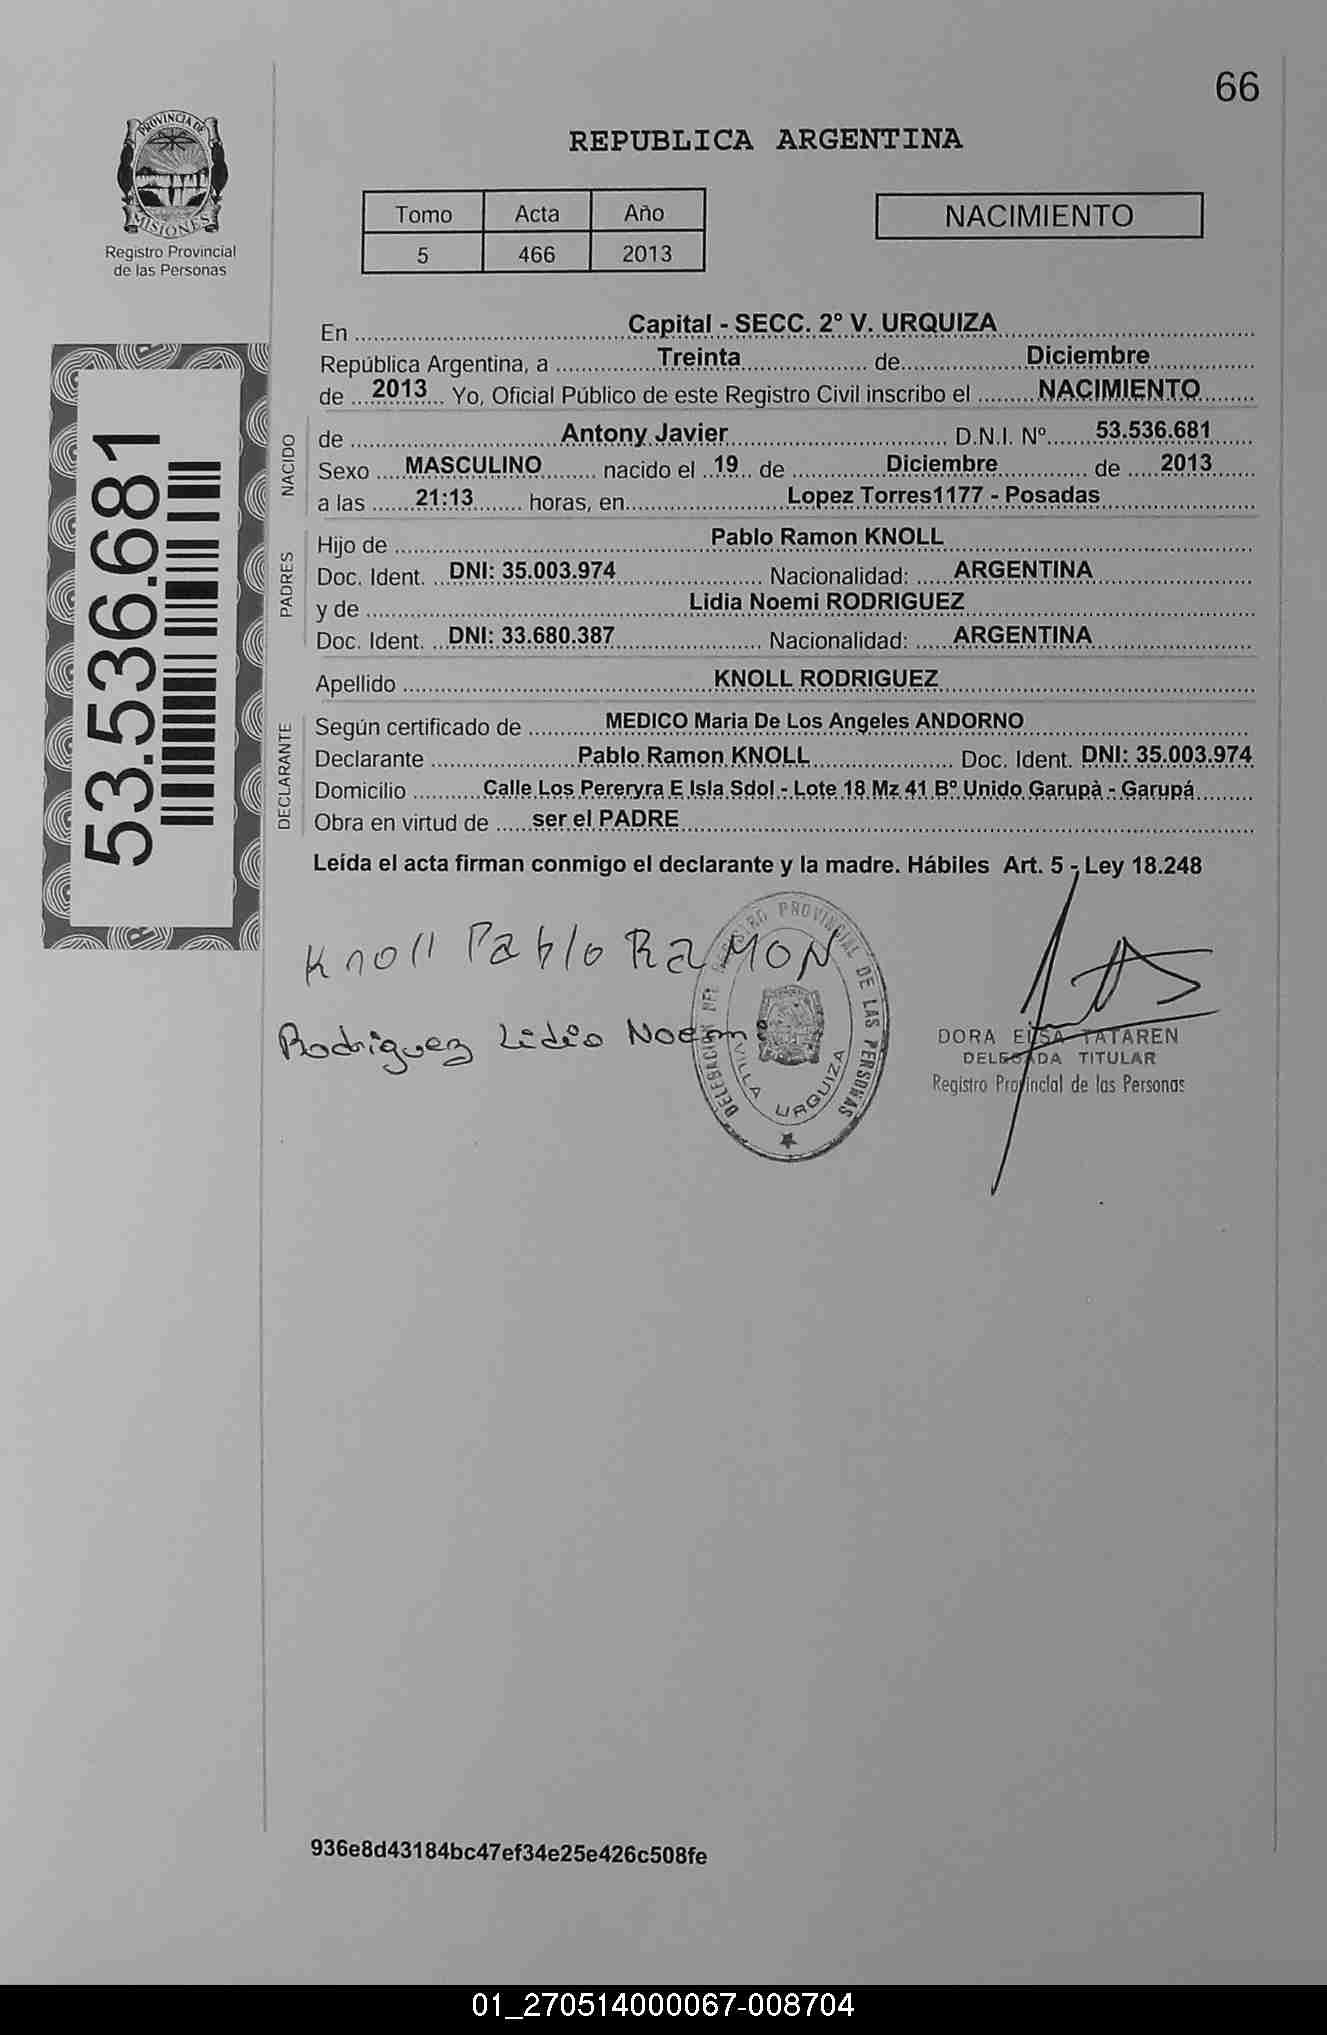 66
PROVINCIA DE
MISIONES
Registro Provincial
de las Personas
REPUBLICA ARGENTINA
Tomo Acta Año
5 466 2013
NACIMIENTO
53.536.681
En Capital - SECC. 2° V. URQUIZA
República Argentina, a Treinta de Diciembre
de 2013 Yo, Oficial Público de este Registro Civil inscribo el NACIMIENTO
NACIDO
de Antony Javier D.N.I. Nº 53.536.681
Sexo MASCULINO nacido el 19 de Diciembre de 2013
a las 21:13 horas, en Lopez Torres1177 - Posadas
PADRES
Hijo de Pablo Ramon KNOLL
Doc. Ident. DNI: 35.003.974 Nacionalidad: ARGENTINA
y de Lidia Noemi RODRIGUEZ
Doc. Ident. DNI: 33.680.387 Nacionalidad: ARGENTINA
Apellido KNOLL RODRIGUEZ
DECLARANTE
Según certificado de MEDICO Maria De Los Angeles ANDORNO
Declarante Pablo Ramon KNOLL Doc. Ident. DNI: 35.003.974
Domicilio Calle Los Pereryra E Isla Sdol - Lote 18 Mz 41 Bº Unido Garupà - Garupá
Obra en virtud de ser el PADRE
Leída el acta firman conmigo el declarante y la madre. Hábiles Art. 5 - Ley 18.248
Knoll Pablo RaMON
Rodriguez Lidia Noemi
DELEGACION DEL REGISTRO PROVINCIAL DE LAS PERSONAS
VILLA URQUIZA
DORA ELSA TATAREN
DELEGADA TITULAR
Registro Provincial de las Personas
936e8d43184bc47ef34e25e426c508fe
01_270514000067-008704